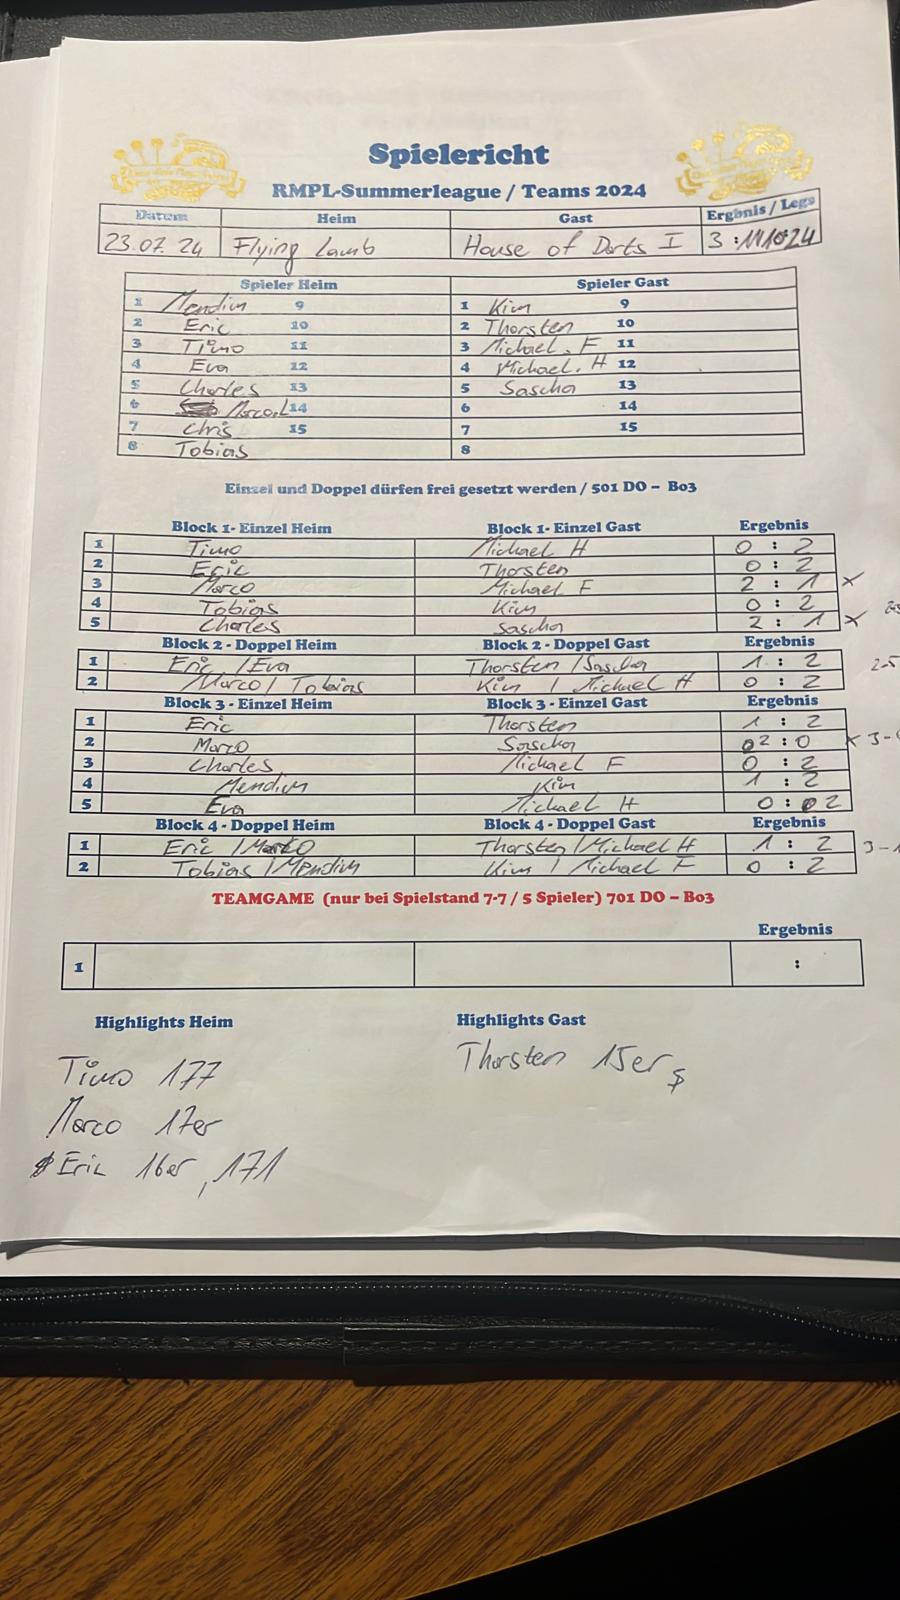 Spielericht
RMPL-Summerleague / Teams 2024
Datum Heim Gast Ergbnis / Legs
23.07.24 Flying Lamb House of Darts I 3 : 11 10:24
Spieler Heim Spieler Gast
1 Mendim 9 1 Kim 9
2 Eric 10 2 Thorsten 10
3 Timo 11 3 Michael. F 11
4 Eva 12 4 Michael. H 12
5 Charles 13 5 Sascha 13
6 Marco.L 14 6 14
7 Chris 15 7 15
8 Tobias 8
Einzel und Doppel dürfen frei gesetzt werden / 501 DO – Bo3
Block 1- Einzel Heim Block 1- Einzel Gast Ergebnis
1 Timo Michael H 0 : 2
2 Eric Thorsten 0 : 2
3 Marco Michael F 2 : 1 x
4 Tobias Kim 0 : 2
5 Charles Sascha 2 : 1 x
Block 2 - Doppel Heim Block 2 - Doppel Gast Ergebnis
1 Eric / Eva Thorsten / Sascha 1 : 2 2-5
2 Marco / Tobias Kim / Michael H 0 : 2
Block 3 - Einzel Heim Block 3 - Einzel Gast Ergebnis
1 Eric Thorsten 1 : 2
2 Marco Sascha 2 : 0 x 3-
3 Charles Michael F 0 : 2
4 Mendim Kim 1 : 2
5 Eva Michael H 0 : 2
Block 4 - Doppel Heim Block 4 - Doppel Gast Ergebnis
1 Eric / Marco Thorsten / Michael H 1 : 2 3-1
2 Tobias / Mendim Kim / Michael F 0 : 2
TEAMGAME (nur bei Spielstand 7-7 / 5 Spieler) 701 DO – Bo3
Ergebnis
1 :
Highlights Heim Highlights Gast
Timo 177 Thorsten 15er
Marco 17er
Eric 16er, 171